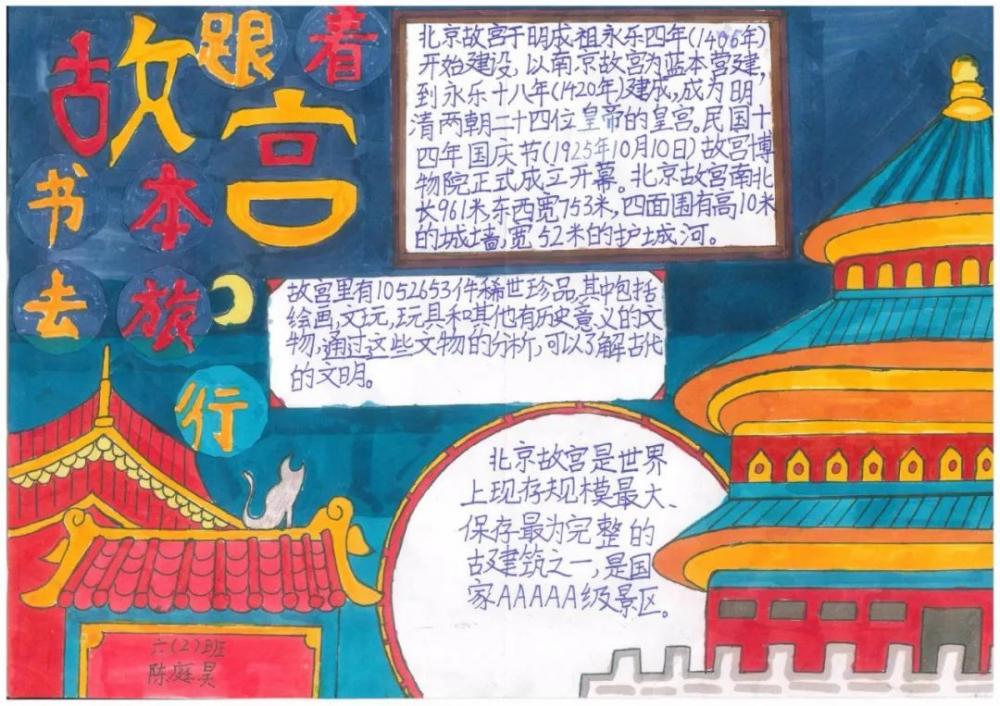 故宫
跟着
书本
去旅
行
北京故宫于明成祖永乐四年(1406年)
开始建设,以南京故宫为蓝本营建,
到永乐十八年(1420年)建成,成为明
清两朝二十四位皇帝的皇宫。民国十
四年国庆节(1925年10月10日)故宫博
物院正式成立开幕。北京故宫南北
长961米,东西宽753米,四面围有高10米
的城墙,宽52米的护城河。
故宫里有1052653件稀世珍品,其中包括
绘画,文玩,玩具和其他有历史意义的文
物,通过这些文物的分析,可以了解古代
的文明。
北京故宫是世界
上现存规模最大、
保存最为完整的
古建筑之一,是国
家AAAAA级景区。
六(2)班
陈庭昊